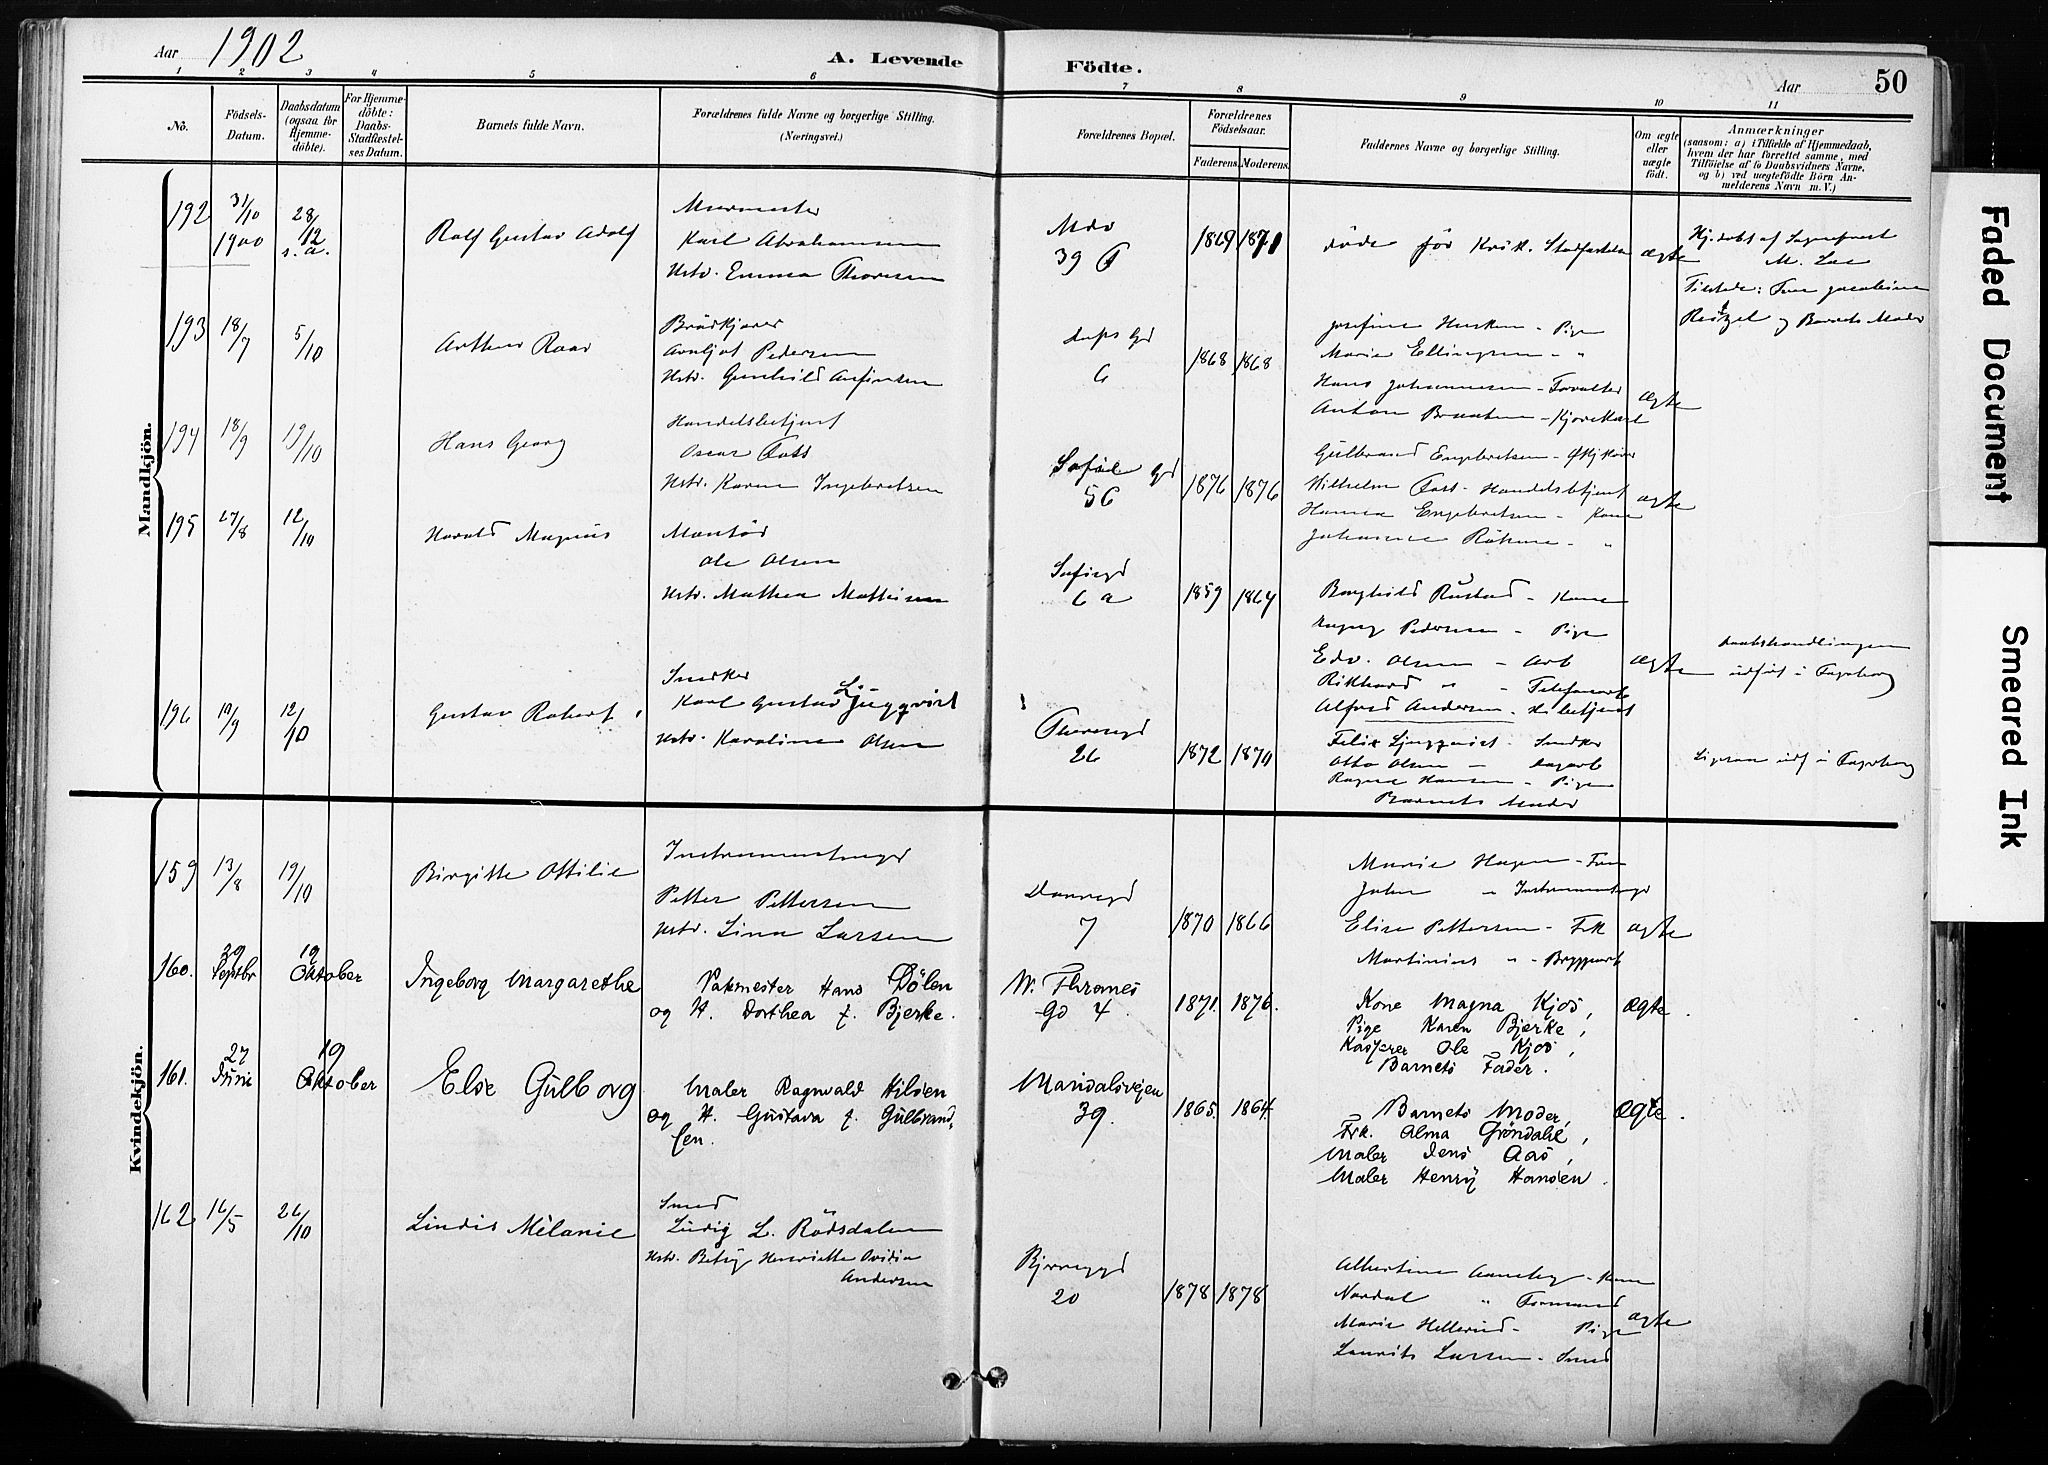 Aar 1902
A. Levende
Födte.
Aar
50
1 2 3 4 5 6 7 8 9 10 11
No.
Födsels-
Datum.
Daabsdatum
(ogsaa for
Hjemme-
döbte).
For Hjemme-
döbte:
Daabs-
Stadfæstel-
ses Datum.
Barnets fulde Navn.
Forældrenes fulde Navne og borgerlige Stilling.
(Næringsvei.)
Forældrenes Bopæl.
Forældrenes
Födselsaar.
Faderens. Moderens.
Faddernes Navne og borgerlige Stilling.
Om ægte
eller
uægte
födt.
Anmærkninger
(saasom: a) i Tilfælde af Hjemmedaab,
hvem der har forrettet samme, med
Tilföielse af to Daabsvidners Navne,
og b) ved uægtefödte Börn An-
melderens Navn m. V.)
Mandkjön.
192
31/10
1900
28/12
s. a.
Rolf Gustav Adolf
Murmester
Karl Abrahamsen
Hstr. Emma Thoresen
39
1869 1871
döde för Kirk. Stadfæstelse
ægte
Hj. döbt af Sognepræst
Tilstede: Fru Jacobine
Reitzel og Barnets Moder
193
18/7
5/10
Arthur Roar
Brödkjører
Arnljot Pedersen
Hstr. Gunhild Anfinsen
6
1868 1868
Josefine - Pige
Marie Ellingsen - "
Hans Johannesen - Forvalter
Anton Braaten - Kjørekarl
ægte
194
18/9
19/10
Hans Georg
Handelsbetjent
Oscar Foss
Hstr. Karen Ingebretsen
56
1876 1876
Gulbrand Engebretsen
Wilhelm Foss - Handelsbetjent
Hanna Engebretsen - Kone
Johanne - "
ægte
195
27/8
12/10
Harald Magnus
Montör
Ole Olsen
Hstr. Mathea Mathisen
Sofiegd
6 a
1859 1864
Borghild Rustad - Kone
Pedersen - Pige
Edv. Olsen - Arb
Rikhard " - Telefonarb
Alfred Andersen - H. betjent
ægte
Daabshandlingen
udført i Fagerborg
196
10/9
12/10
Gustav Robert
Snedker
Karl Gustav Ljungqvist
Hstr. Karoline Olsen
Theresegd
26
1872 1870
Felix Ljungqvist - Snedker
Otto Olsen - Dagarb
Ragna Hansen - Pige
Barnets Moder
Ligesaa udf i Fagerborg
Kvindekjön.
159
13/8
19/10
Birgitte Ottilie
Instrumentmager
Petter Pettersen
Hstr. Lina Larsen
7
1870 1866
Marie Hagen - Frue
John " Instrumentmager
Elise Pettersen - Frk
Martinius " - Bryggearb
ægte
160.
29
Septbr
19
Oktober
Ingeborg Margarethe
Pakmester Hans Dölen
og H. Dorthea f. Bjerke.
W. Thranes
Gd 4.
1871. 1876.
Kone Magna Kjos,
Pige Karen Bjerke,
Kasserer Ole Kjos,
Barnets Fader.
Ægte.
161.
27
Juni
19
Oktober
Else Gulborg
Maler Ragnvald Hilsen
og H. Gustava f. Gulbrand-
sen.
Maridalsvejen
39.
1865. 1864.
Barnets Moder,
Frk. Alma Gröndahl,
Maler Jens Aas,
Maler Henry Hansen.
Ægte.
162
16/5
26/10
Lindis Mélanie
Smed
Ludvig L. Rödsdalen
Hstr. Betsy Henriette Ovidia
Andersen
Bjerregd
20
1878 1878
Albertine Aaneby - Kone
Nordal " Formand
Marie Hellerud - Pige
Laurits Larsen - Smed
ægte
Faded Document
Smeared Ink